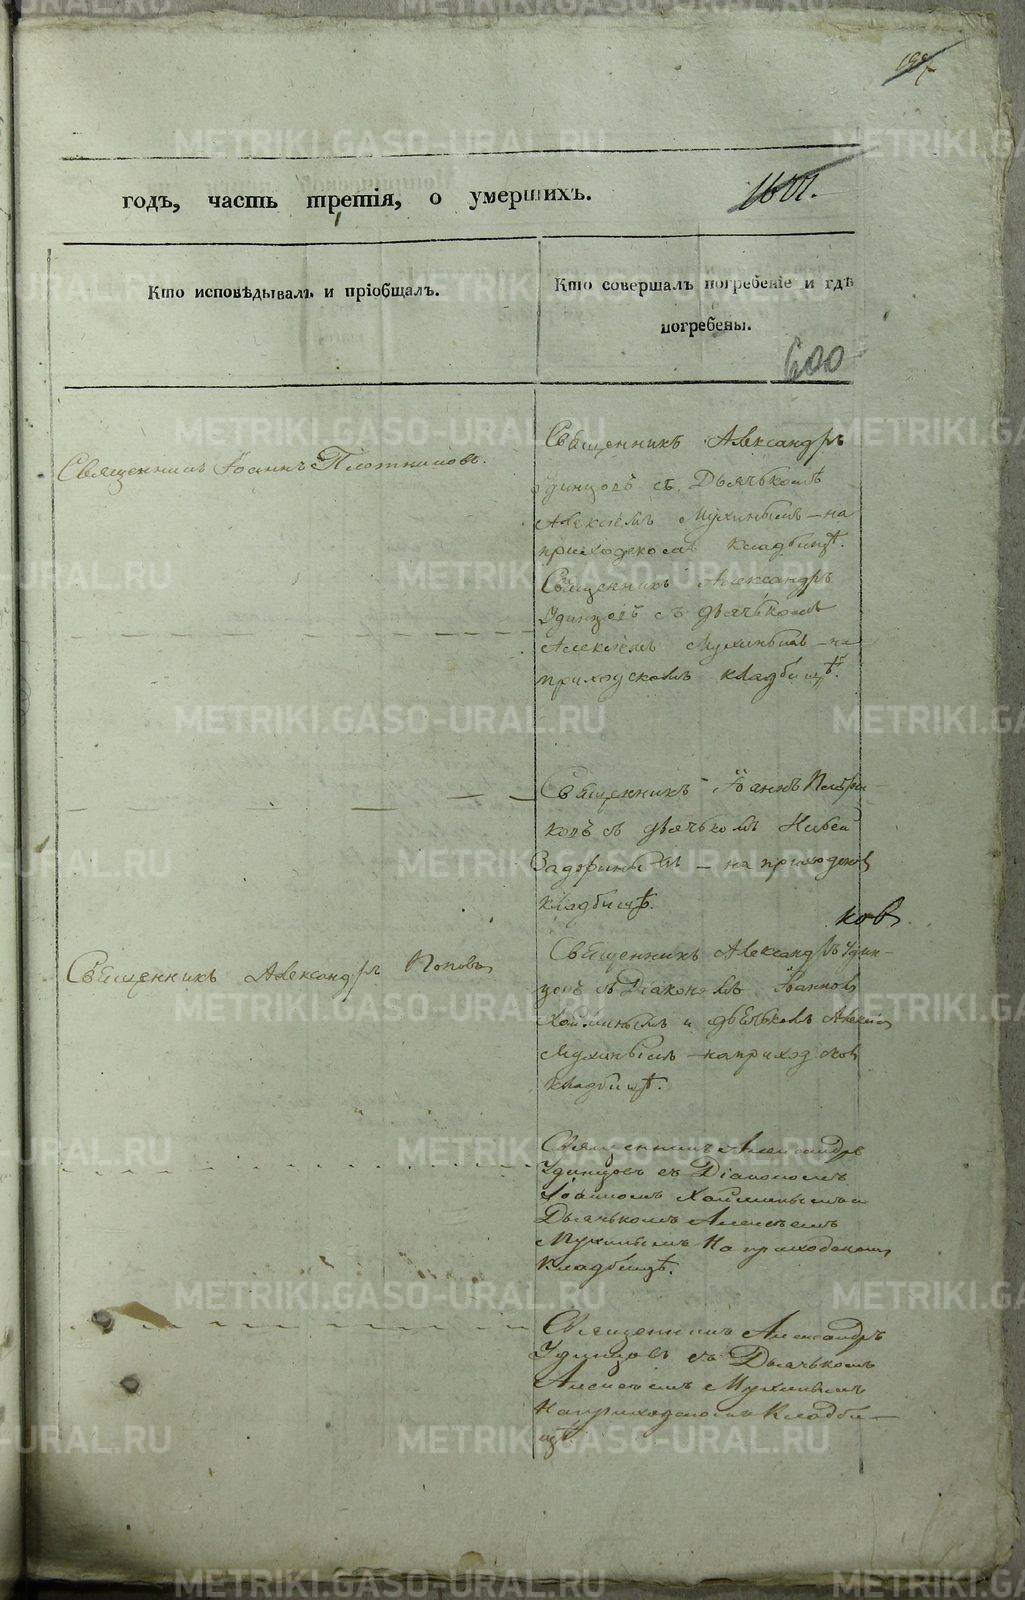 годъ, часть третія, о умершихъ.
Кто исповѣдывалъ и пріобщалъ.
Кто совершалъ погребеніе и гдѣ
погребены.
600
Священникъ Іоаннъ Плотниковъ.
Священникъ Александръ
Удинцовъ съ Дьячькомъ
Алексѣемъ Мухинымъ – на
приходскомъ кладбищѣ.
Священникъ Александръ
Удинцовъ съ дьячькомъ
Алексѣемъ Мухинымъ – на
приходскомъ кладбищѣ.
Священникъ Іоаннъ Плотни
ковъ съ дьячькомъ
Задоринымъ – на приходском
кладбищѣ.
ков
Священникъ Александръ Поповъ
Священникъ Александръ Удин-
цовъ съ Діакономъ Іоанном
и дьячькомъ Алексѣем
Мухинымъ – на приходском
кладбищѣ.
Священникъ Александръ
Удинцовъ съ Діакономъ
Іоанномъ
Дьячькомъ Алексѣемъ
Мухинымъ На приходскомъ
Кладбищѣ.
Священникъ Александръ
Удинцовъ съ Дьячькомъ
Алексѣемъ Мухинымъ
На приходскомъ Кладби-
щѣ.
METRIKI.GASO-URAL.RU